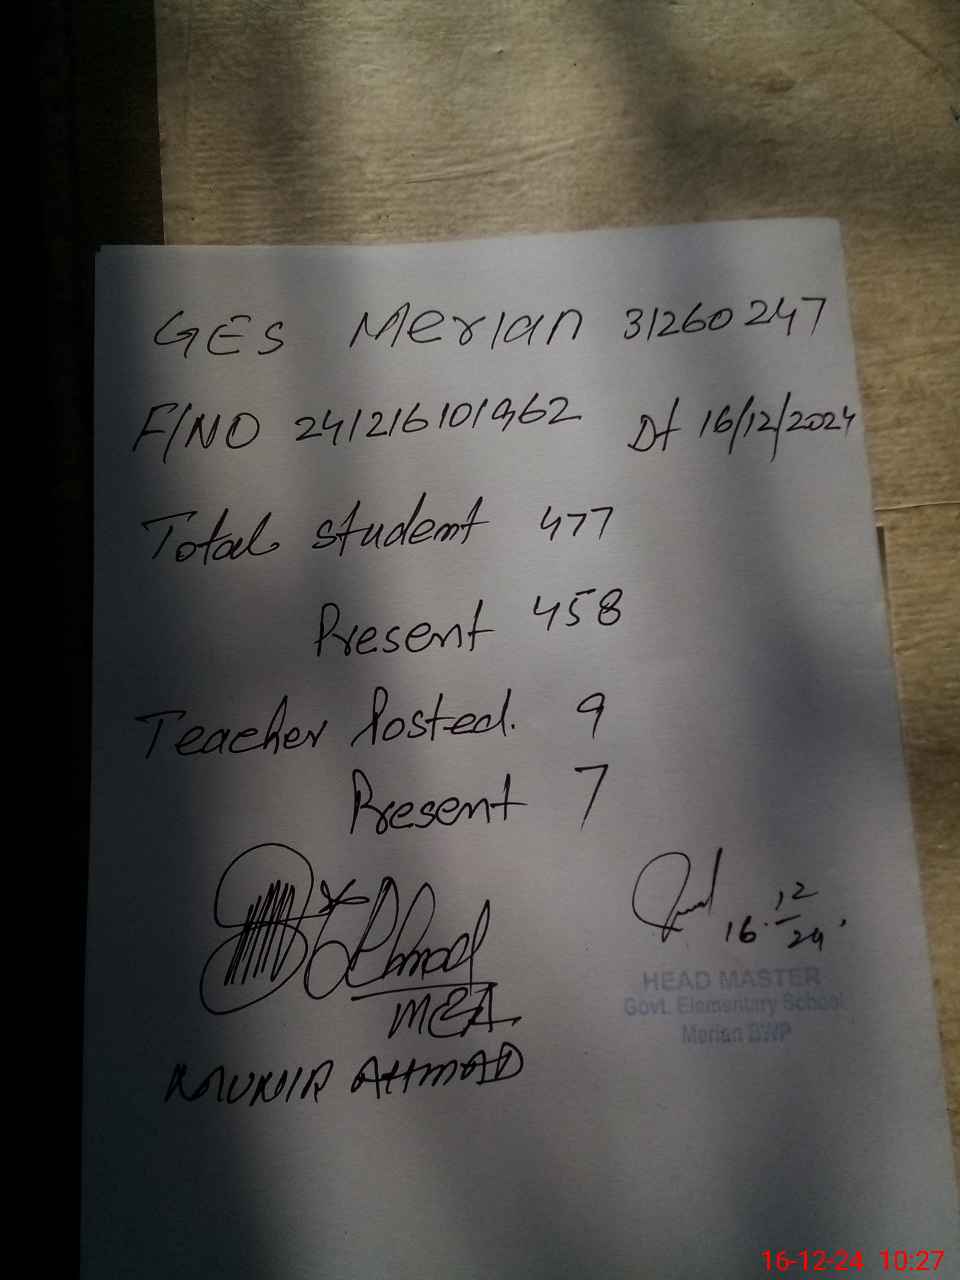 GES Merian 31260247
F/NO 241216101962 Dt 16/12/2024
Total student 477
Present 458
Teacher Posted. 9
Present 7
Ahmad
MEA
MUNIR AHMAD
16.12/24.
HEAD MASTER
Govt. Elementary School
Merian BWP
16-12-24 10:27